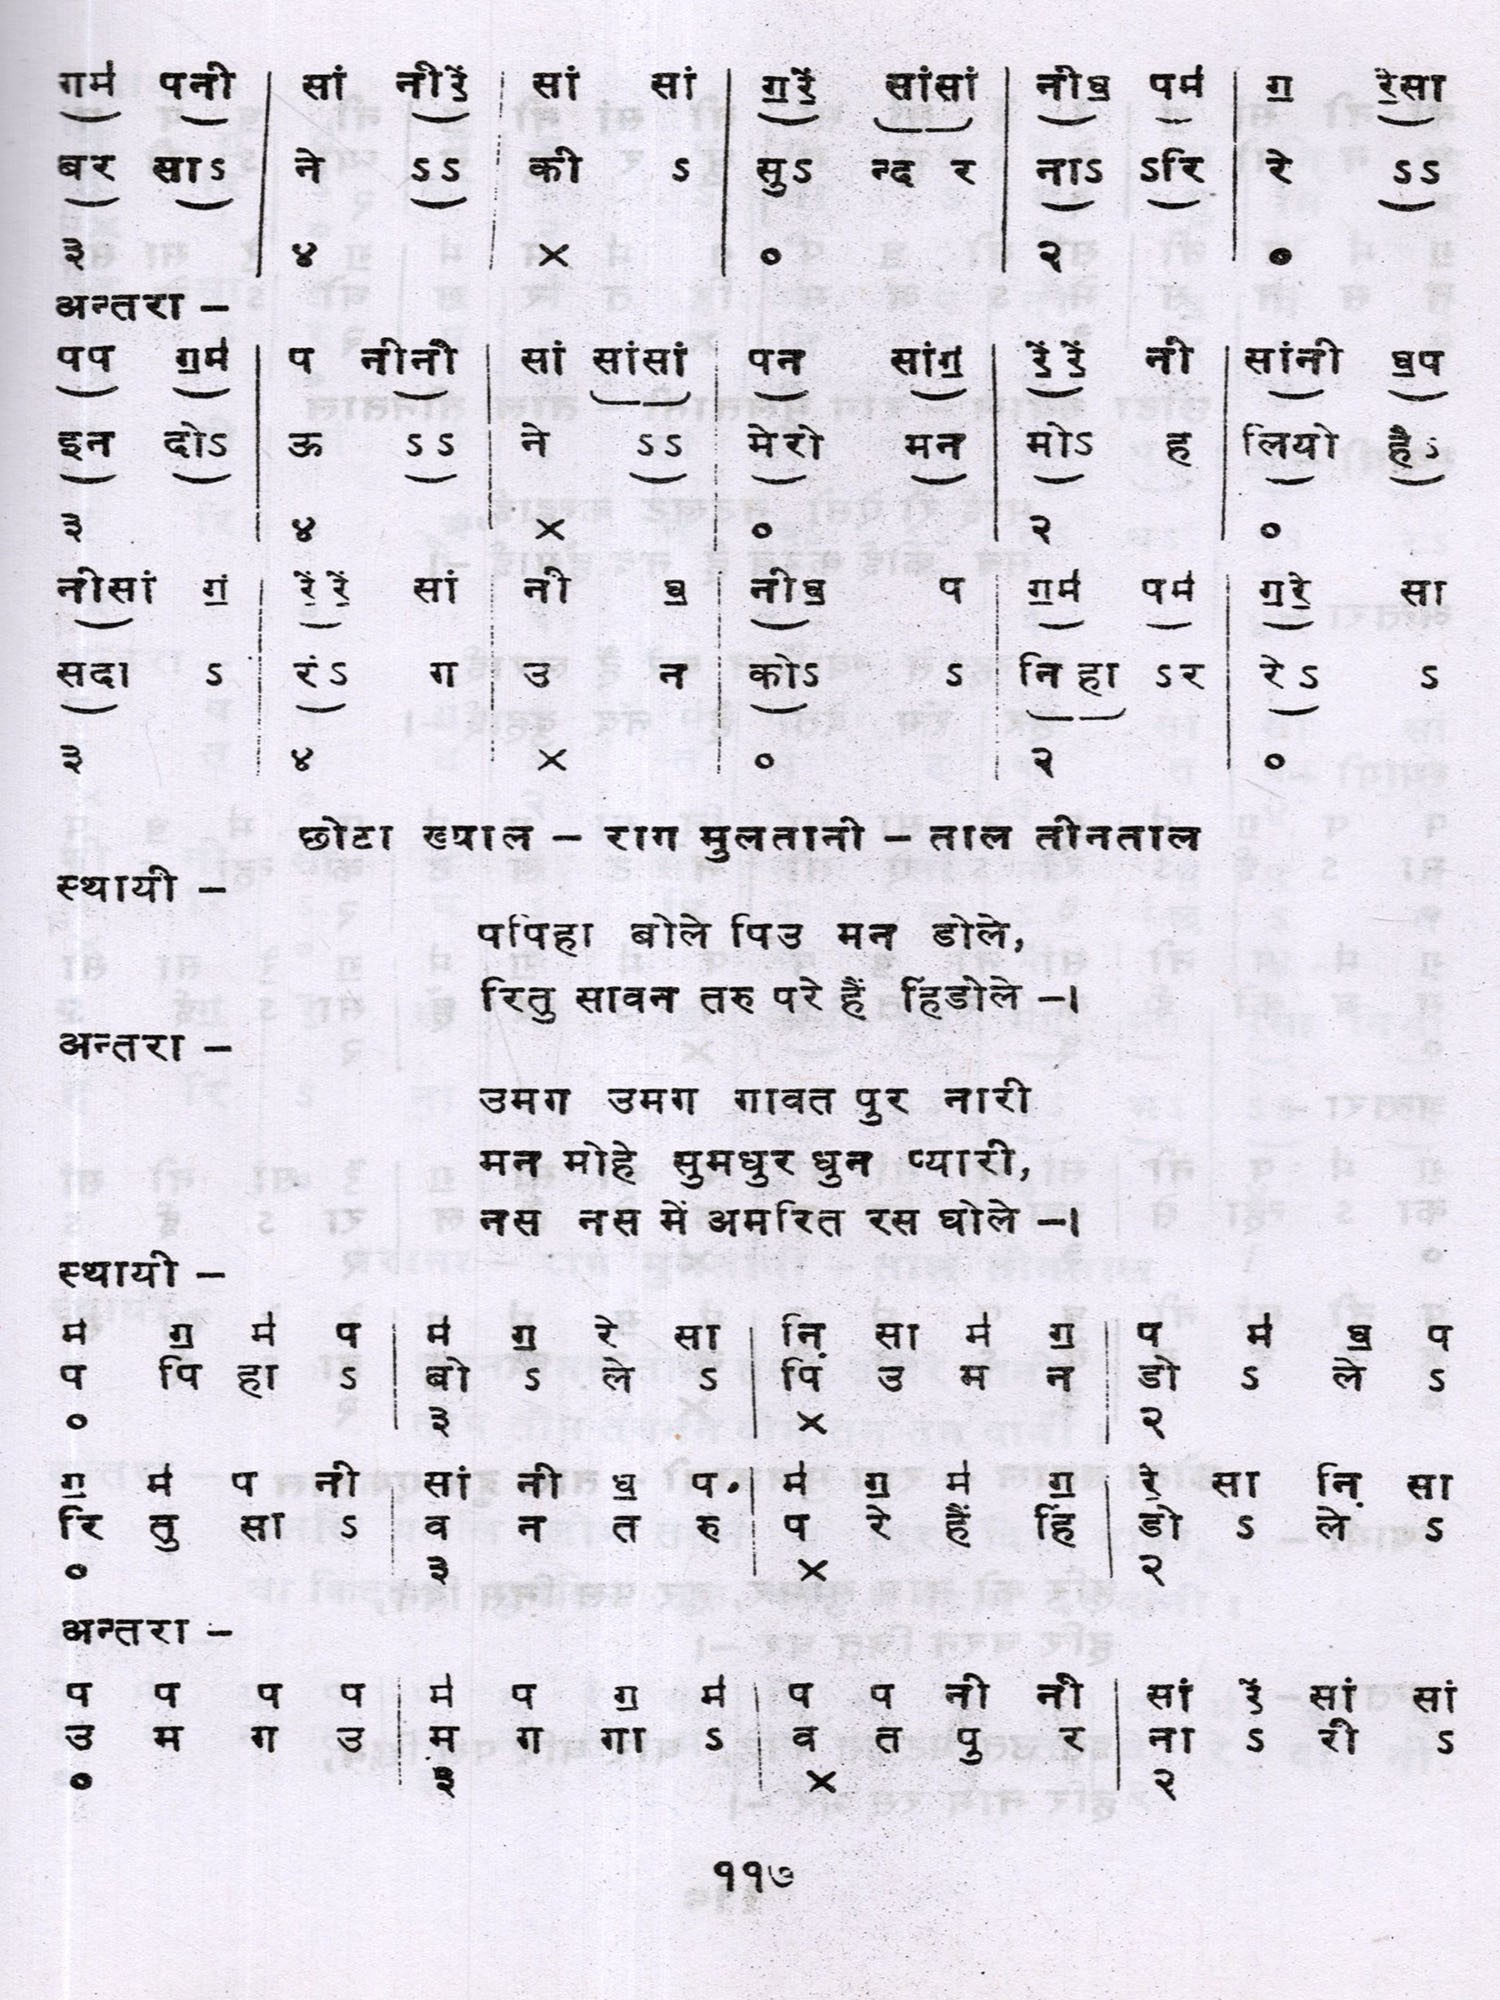 गम॑ पनी | सां नीरें॒ | सां सां | ग॒रें॒ सांसां | नीध॒ पम॑ | ग॒ रे॒सा
बर साऽ | ने ऽऽ | की ऽ | सुऽ न्द र | नाऽ ऽरि | रे ऽऽ
३ | ४ | × | ० | २ | ०
अन्तरा –
पप ग॒म॑ | प नीनी | सां सांसां | पन सांग॒ | रें॒रें॒ नी | सांनी ध॒प
इन दोऽ | ऊ ऽऽ | ने ऽऽ | मेरो मन | मोऽ ह | लियो हैऽ
३ | ४ | × | ० | २ | ०
नीसां गं॒ | रें॒रें॒ सां | नी ध॒ | नीध॒ प | ग॒म॑ पम॑ | ग॒रे॒ सा
सदा ऽ | रंऽ ग | उ न | कोऽ ऽ | नि हा ऽर | रेऽ ऽ
३ | ४ | × | ० | २ | ०
छोटा ख्याल – राग मुलतानी – ताल तीनताल
स्थायी –
पपिहा बोले पिउ मन डोले,
रितु सावन तरु परे हैं हिंडोले –।
अन्तरा –
उमग उमग गावत पुर नारी
मन मोहे सुमधुर धुन प्यारी,
नस नस में अमरित रस घोले –।
स्थायी –
म॑ ग॒ म॑ प | म॑ ग॒ रे सा | नि़ सा म॑ ग॒ | प म॑ ध॒ प
प पि हा ऽ | बो ऽ ले ऽ | पि उ म न | डो ऽ ले ऽ
० | ३ | × | २
ग॒ म॑ प नी | सां नी ध॒ प | म॑ ग॒ म॑ ग॒ | रे॒ सा नि़ सा
रि तु सा ऽ | व न त रु | प रे हैं हिं | डो ऽ ले ऽ
० | ३ | × | २
अन्तरा –
प प प प | म॑ प ग॒ म॑ | प प नी नी | सां रें॒ सां सां
उ म ग उ | म ग गा ऽ | व त पु र | ना ऽ री ऽ
० | ३ | × | २
११७